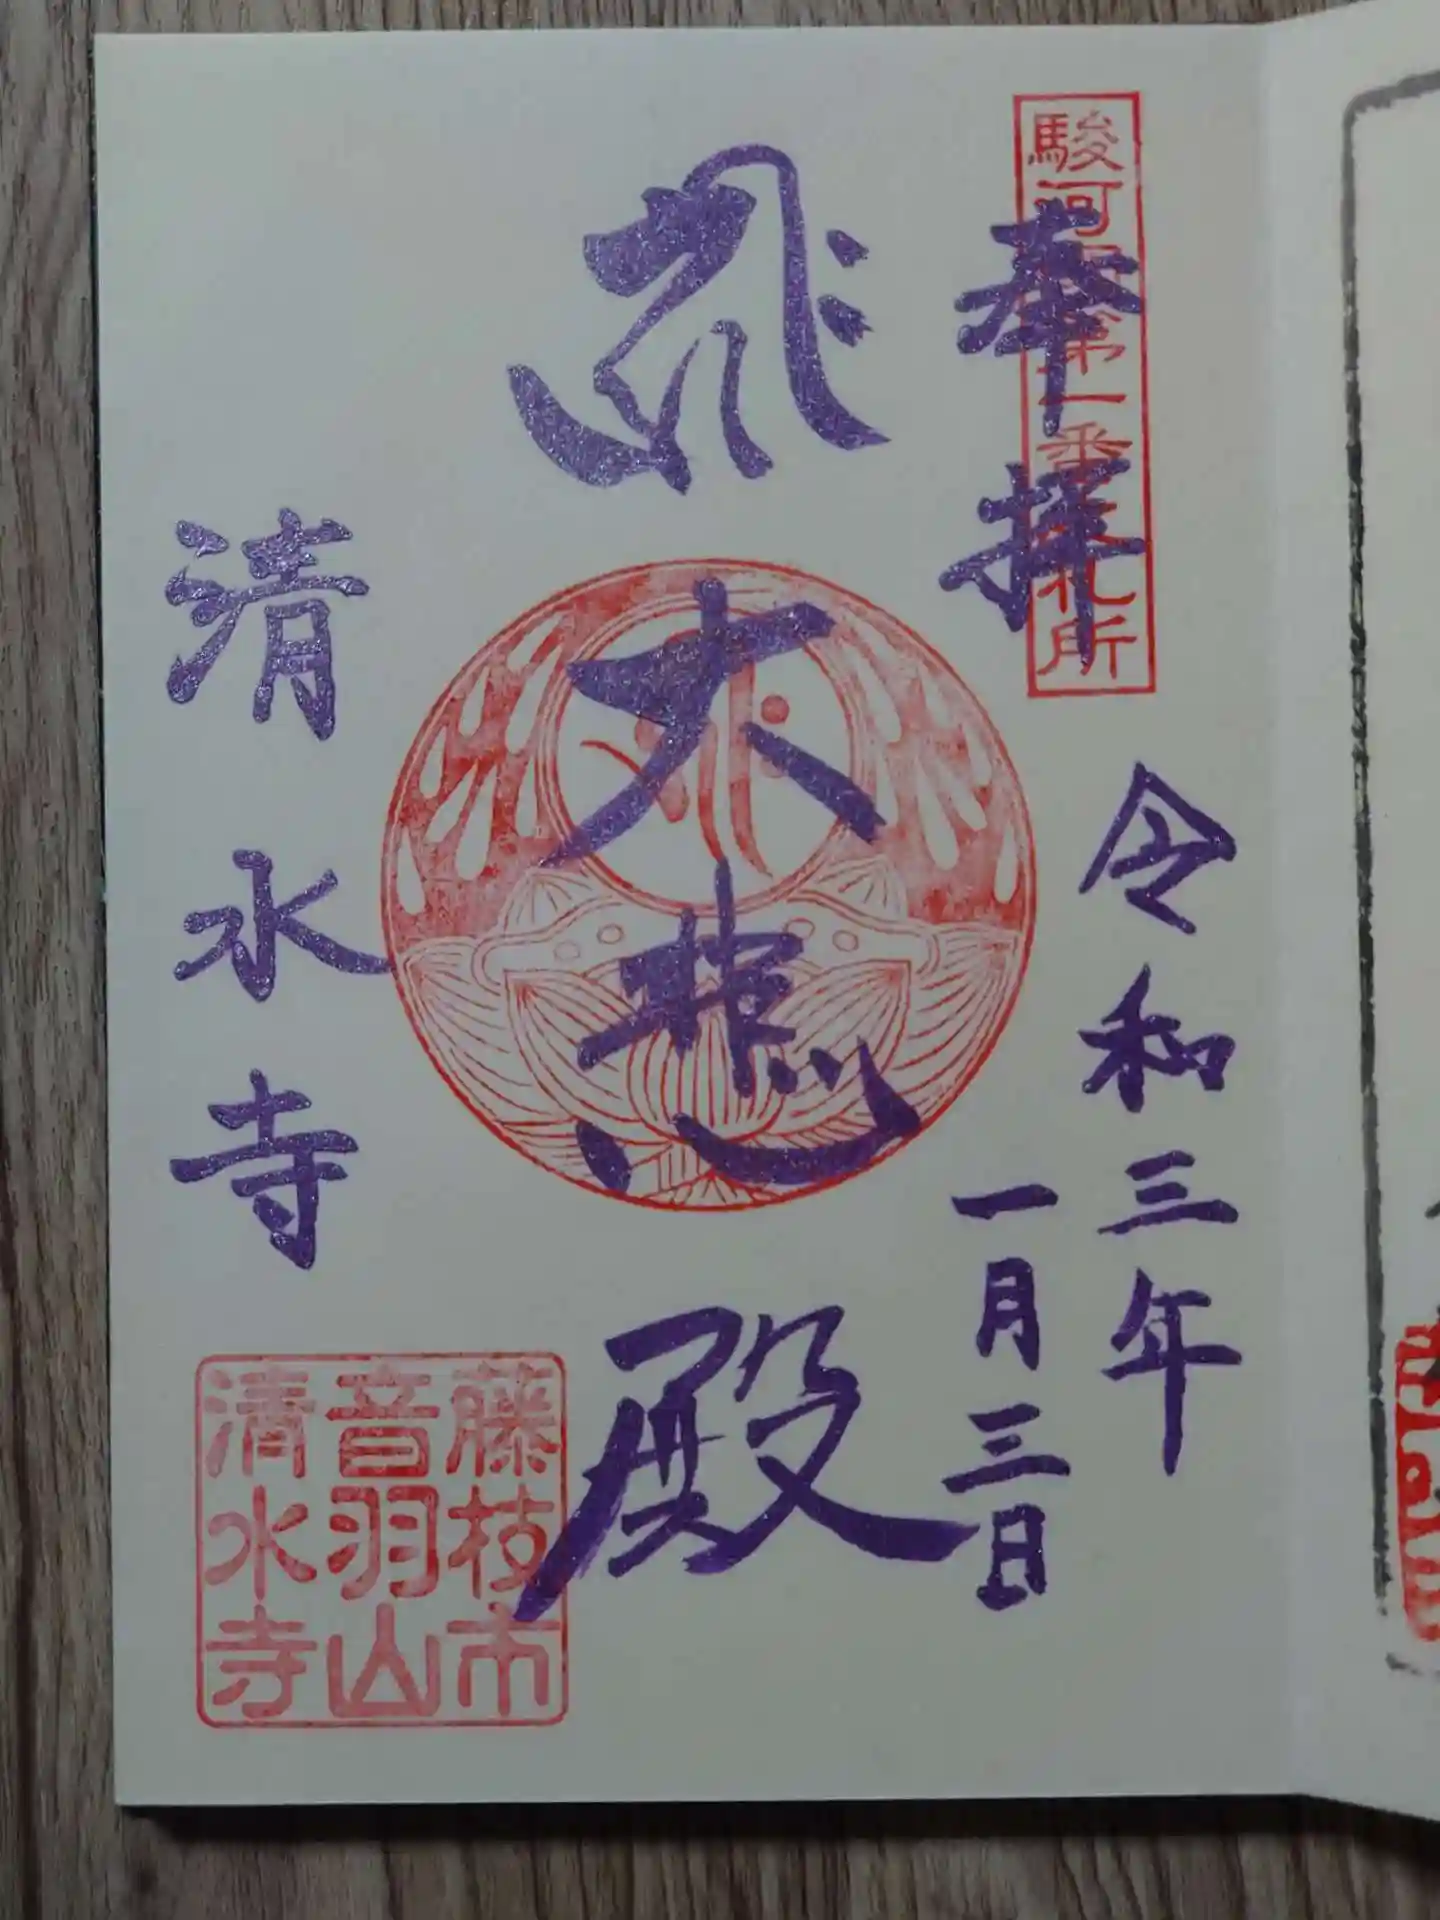 駿河国第一番札所
奉拝
令和三年
一月三日
大悲殿
清水寺
藤枝市
音羽山
清水寺